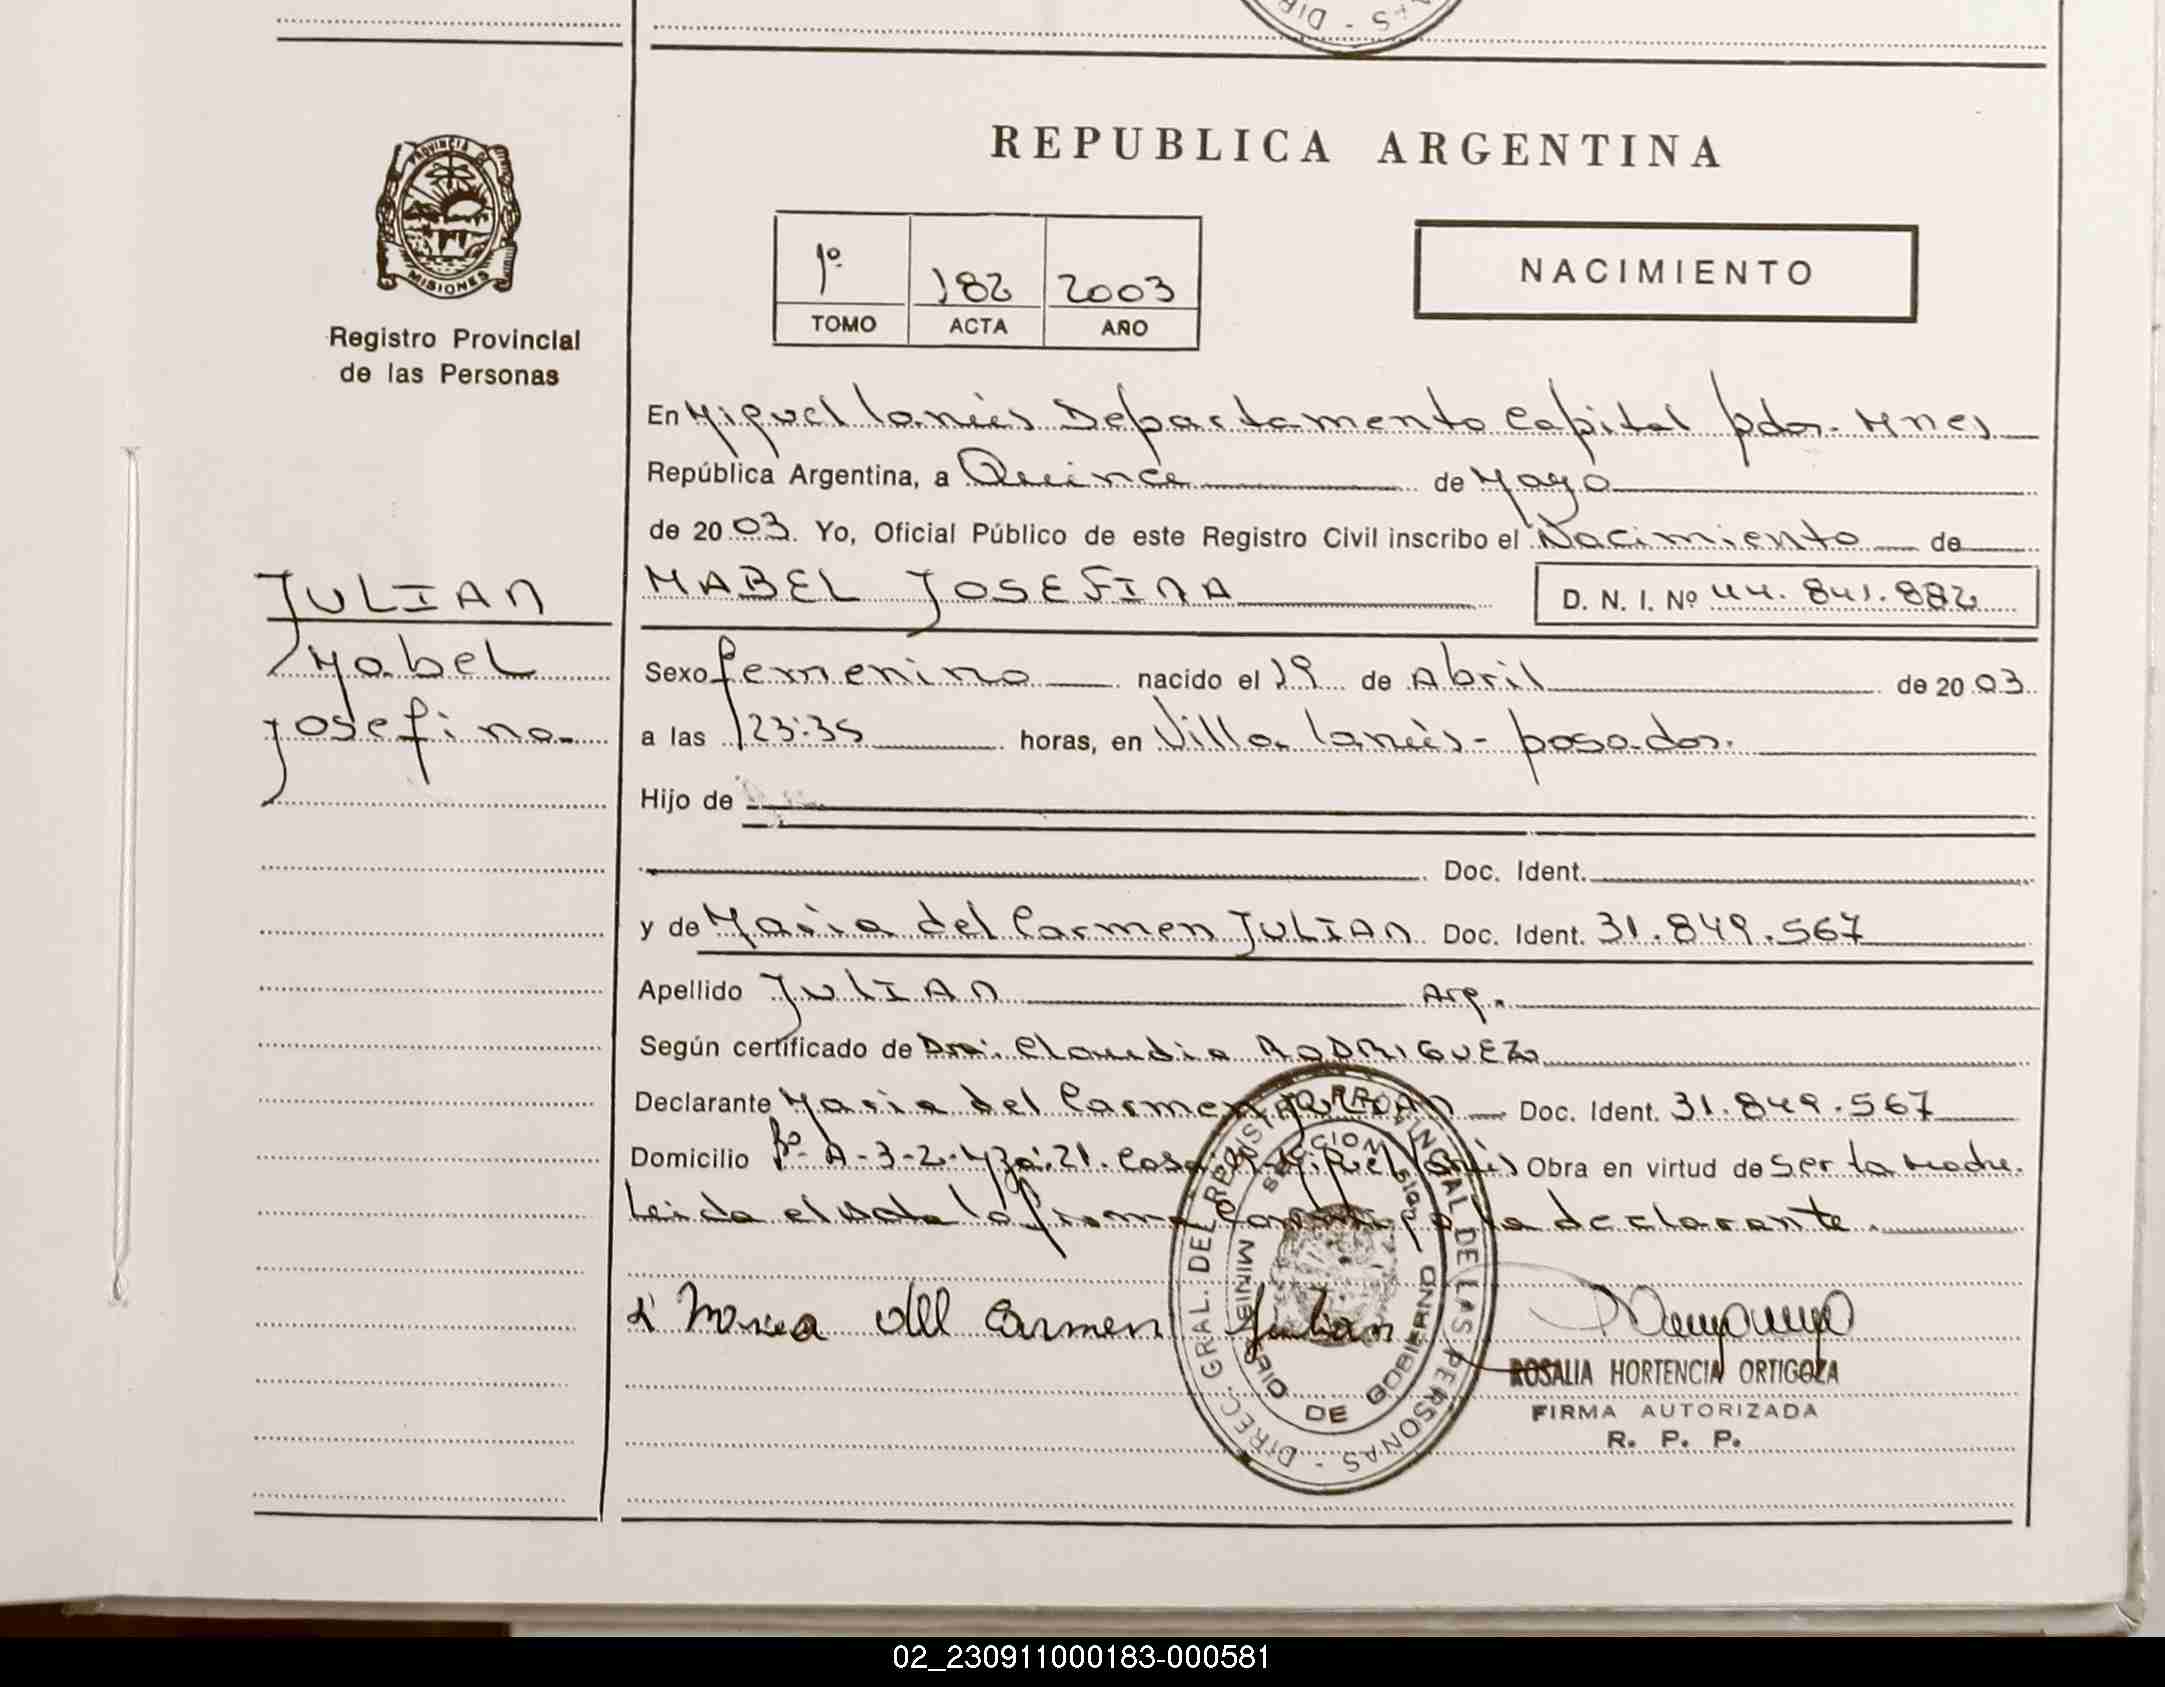 DIR - S AS
REPUBLICA ARGENTINA
PROVINCIA DE
MISIONES
Registro Provincial
de las Personas
1º 182 2003
TOMO ACTA AÑO
NACIMIENTO
En Miguel Lanús Departamento Capital pdas. Mnes
República Argentina, a Quince de Mayo
de 2003. Yo, Oficial Público de este Registro Civil inscribo el Nacimiento de
MABEL JOSEFINA D. N. I. Nº 44.841.882
JULIAN
Mabel
Josefina
Sexo femenino nacido el 19 de Abril de 2003
a las 23:35 horas, en Villa Lanús - posadas.
Hijo de
Doc. Ident.
y de Maria del Carmen JULIAN Doc. Ident. 31.849.567
Apellido JULIAN Arg.
Según certificado de Dra. Claudia RODRIGUEZ
Declarante Maria del Carmen JULIAN Doc. Ident. 31.849.567
Domicilio Bº A-3-2-Mza: 21. Casa Miguel Lanús Obra en virtud de ser la Madre.
Leida el Acta la firma Conmigo la declarante.
Maria del Carmen Julian
DIREC. GRAL. DEL REGISTRO PROVINCIAL DE LAS PERSONAS
MINISTERIO DE GOBIERNO
ROSALIA HORTENCIA ORTIGOZA
FIRMA AUTORIZADA
R. P. P.
02_230911000183-000581